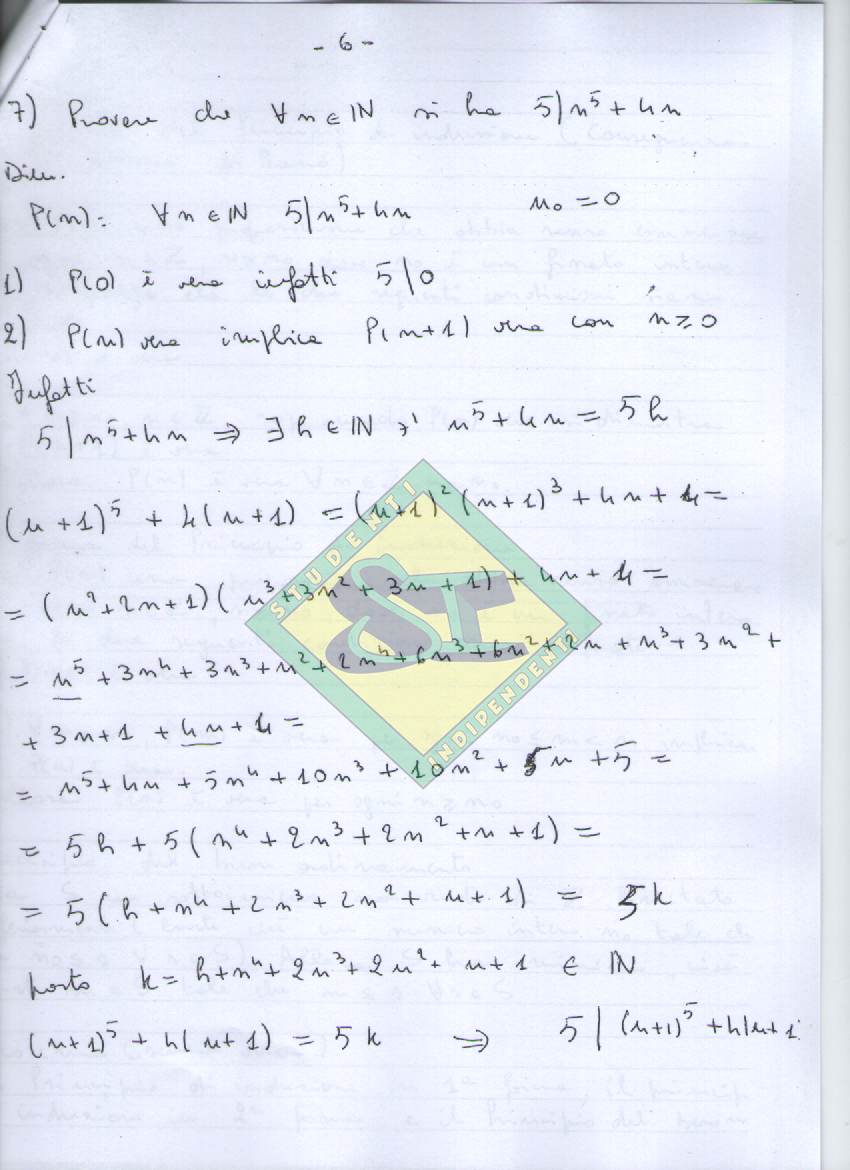 - 6 -
7) Provare che ∀ n ∈ IN si ha 5 | n⁵ + 4n
Dim.
P(n): ∀ n ∈ IN 5 | n⁵ + 4n n₀ = 0
1) P(0) è vera infatti 5 | 0
2) P(n) vera implica P(n+1) vera con n ≥ 0
Infatti
5 | n⁵ + 4n ⇒ ∃ h ∈ IN ∋' n⁵ + 4n = 5h
(n+1)⁵ + 4(n+1) = (n+1)² (n+1)³ + 4n + 4 =
= (n² + 2n + 1) (n³ + 3n² + 3n + 1) + 4n + 4 =
= n⁵ + 3n⁴ + 3n³ + n² + 2n⁴ + 6n³ + 6n² + 2n + n³ + 3n² +
+ 3n + 1 + 4n + 4 =
= n⁵ + 4n + 5n⁴ + 10n³ + 10n² + 5n + 5 =
= 5h + 5(n⁴ + 2n³ + 2n² + n + 1) =
= 5(h + n⁴ + 2n³ + 2n² + n + 1) = 5k
posto k = h + n⁴ + 2n³ + 2n² + n + 1 ∈ IN
(n+1)⁵ + 4(n+1) = 5k ⇒ 5 | (n+1)⁵ + 4(n+1
STUDENTI
SI
INDIPENDENTI